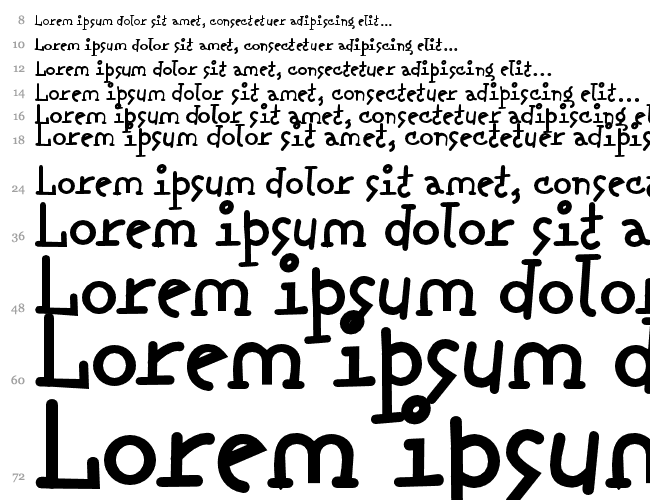 8 Lorem ipsum dolor sit amet, consectetuer adipiscing elit...
10 Lorem ipsum dolor sit amet, consectetuer adipiscing elit...
12 Lorem ipsum dolor sit amet, consectetuer adipiscing elit...
14 Lorem ipsum dolor sit amet, consectetuer adipiscing elit...
16 Lorem ipsum dolor sit amet, consectetuer adipiscing el
18 Lorem ipsum dolor sit amet, consectetuer adipis
24 Lorem ipsum dolor sit amet, consec
36 Lorem ipsum dolor sit a
48 Lorem ipsum dolor
60 Lorem ipsum d
72 Lorem ipsum